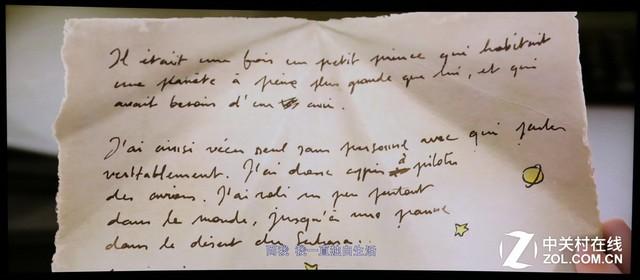 Il était une fois un petit prince qui habitait
une planète à peine plus grande que lui, et qui
avait besoin d'un ami.
J'ai ainsi vécu seul sans personne avec qui parler
véritablement. J'ai donc appris à piloter
des avions. J'ai volé un peu partout
dans le monde, jusqu'à une panne
dans le désert du Sahara...
一直独自生活
中关村在线
ZOL.COM.CN